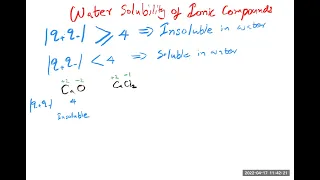 Water Solubility of Ionic Compounds
|q+q-| ≥ 4 ⇒ Insoluble in water
|q+q-| < 4 ⇒ Soluble in water
+2 -2 +2 -1
CaO CaCl2
|q+q-| 4
Insoluble
2022-04-17 11:42:21